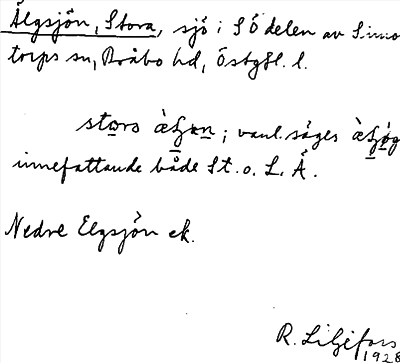 Älgsjön, Stora, sjö i SÖ delen av Simo
torps sn, Bråbo hd, Östgtl. l.
stors
; vanl. säges
innefattande både St. o. L. Ä.
Nedre Elgsjön ek.
R. Liljefors
1928